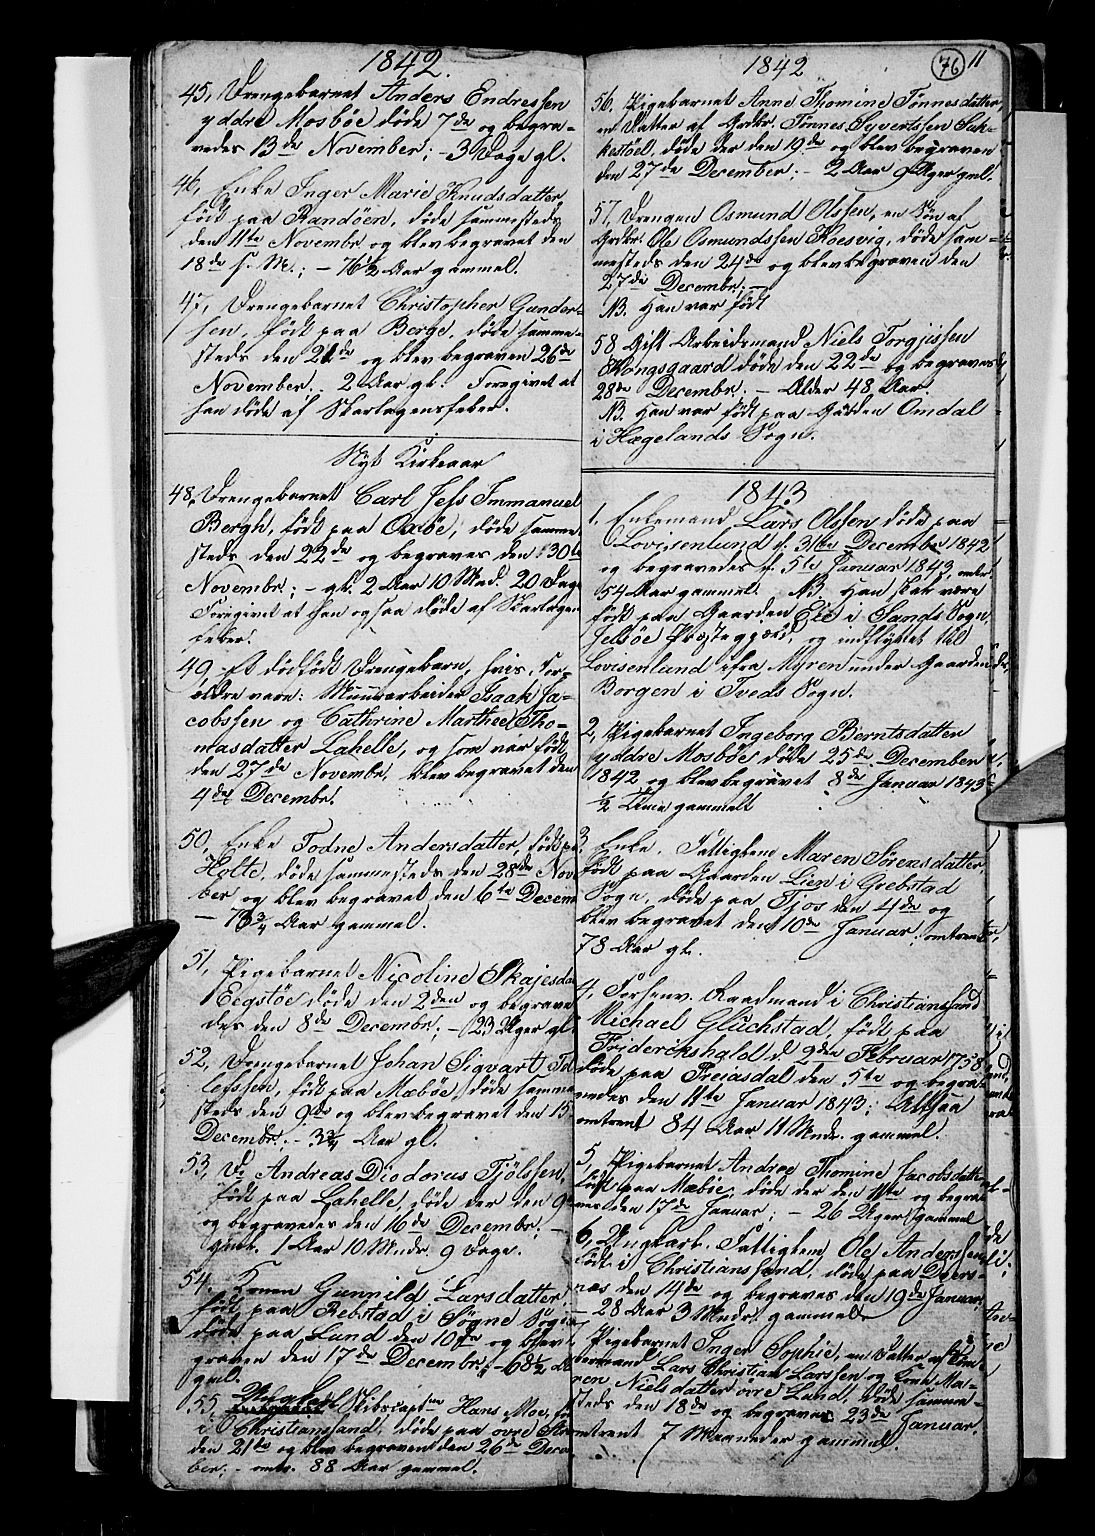 1842.
45, Drengebarnet Anders Endressen
yddre Mosbøe døde 7de og begra-
vedes 13de November; - 3 Dage gl.
46, Enke Inger Marie Knudsdatter,
født paa Randøen, døde sammesteds
den 11te Novembr. og blev begravet den
18de s. M.; - 76½ Aar gammel.
47, Drengebarnet Christopher Gunder-
sen, født paa Berge, døde samme-
steds den 21de og blev begraven 26de
November. 2 Aar gl. Foregivet at
han døde af Skarlagensfeber.
Nyt Kirkeaar
48, Drengebarnet Carl Jess Immanuel
Bergh, født paa Oxøe, døde samme
steds den 22de og begraves den 30te
Novembr.; - gl. 2 Aar 10 Mdr. 20 Dage
Foregivet at han ogsaa døde af Skarlagen
feber.
49, Et dødfødt Drengebarn, hvis For-
ældre vare: Muurarbeider Isaak Ja-
cobssen og Cathrine Marthee Tho-
masdatter Lahelle, og som var født
den 27de Novembr, blev begravet den
4de Decembr.
50, Enke Todne Andersdatter, født paa
Holte, døde sammesteds den 28de Nov
ber og blev begravet den 6te Decem
- 73¾ Aar gammel.
51, Pigebarnet Nicoline Skajesda
Eegstøe døde den 2den og begrave
des den 8de Decembr; - 23 Uger gl
52, Drengebarnet Johan Sigvart To
lefssen, født paa Mæbøe, døde samme
steds den 9de og blev begravet den 15
Decembr. - 3¾ Aar gl.
53, D. Andreas Diodorus Tjølssen,
født paa Lahelle, døde der den 9de
og begravedes den 16de Decembr; -
1 Aar 10 Mndr. 9 Dage.
54. Konen Gunnild Larsdatter,
født paa Rebstad i Søgne Sogn
døde paa Lund den 10de og blev
graven den 17de Decembr; - 68½ A
gml.
55, Skibscaptn Hans Moe, fød
i Christianssand, døde paa ovre
den 21de og blev begraven den 26de Dece
ber; - omtr. 88 Aar gammel.
1842
76
11
56, Pigebarnet Anne Thomine Tønnesdatter,
en Datter af Grdbr. Tønnes Syvertssen Suk-
kestøel, døde der den 19de og blev begraven
den 27de December; - 2 Aar 9 Uger gml.
57, Drengen Osmund Olssen, en Søn af
Grdbr. Ole Osmundssen Koesvig, døde sam-
mesteds den 24de og blev begraven den
27de Decembr; -
NB. Han var født
58, Gift Arbeidsmand Niels Torgjissen
Kongsgaard døde den 22de og begravedes
28de Decembr. - Alder 48 Aar.
NB. Han var født paa Gaarden Omdal
i Hægelands Sogn.
1843
1, Enkemand Lars Olssen døde paa
Lovisenlund d. 31te December 1842
og begravedes d. 5te Januar 1843, omtr.
54 Aar gammel. NB. Han skal være
født paa Gaarden Eie i Sands Sogn,
Jelsøe Præstegjæld, og indflyttet til
Lovisenlund ifra Myren under Gaarden
Borgen i Tveds Sogn.
2, Pigebarnet Ingeborg Berntsdatter
yddre Mosbøe døde 25de December
1842 og blev begravet 8de Januar 1843
½ Time gammelt
3, Enke, Fattiglem Maren Sørensdatter,
født paa Gaarden Lien i Grebstad
Sogn, døde paa Tjos den 4de og
blev begravet den 10de Januar, omtrent
78 Aar gl.
4, Forhenv. Raadmand i Christianssand
Michael Glückstad, født paa
Friderikshald d. 2den Februar 1758
døde paa Preiasdal den 5te og begra-
vedes den 11te Januar 1843; Altsaa
omtrent 84 Aar 11 Mndr. gammel.
5, Pigebarnet Andrea Thomine Jacobsdatter
født paa Mæbøe, døde der den 11te og begrav
vedes den 17de Januar; - 26 Uger gammel
6, Ungkarl, Fattiglem Ole Anderssen
født i Christianssand, døde paa Dvers-
næs den 14de og begraves den 19de Januar
- 28 Aar 3 Mndr. gammel
7, Pigebarnet Inger Sophie, en Datter af
Lars Christian Larssen og Kone Ma-
ren Nielsdatter ovre Lund, døde samme-
steds den 18de og begraves 23de Januar,
omtrent 7 Maaneder gammel.